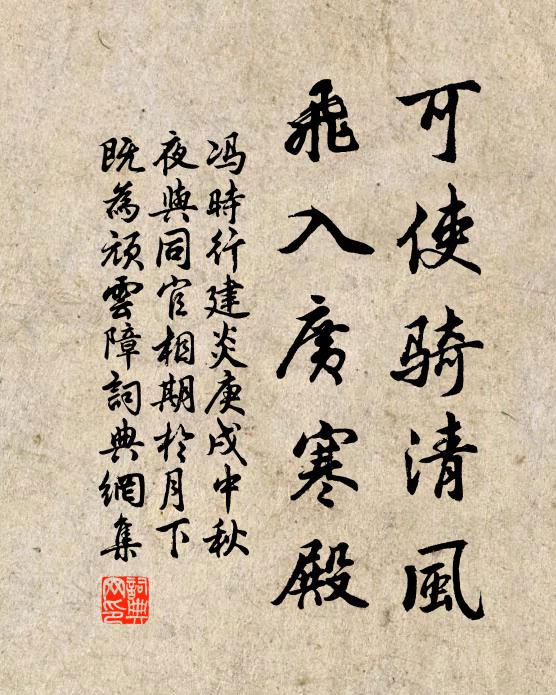 可使骑清風
飛入廣寒殿
冯時行建炎庚戌中秋
夜與同官相期於月下
既為頑雲障詞典網集
詞典網印